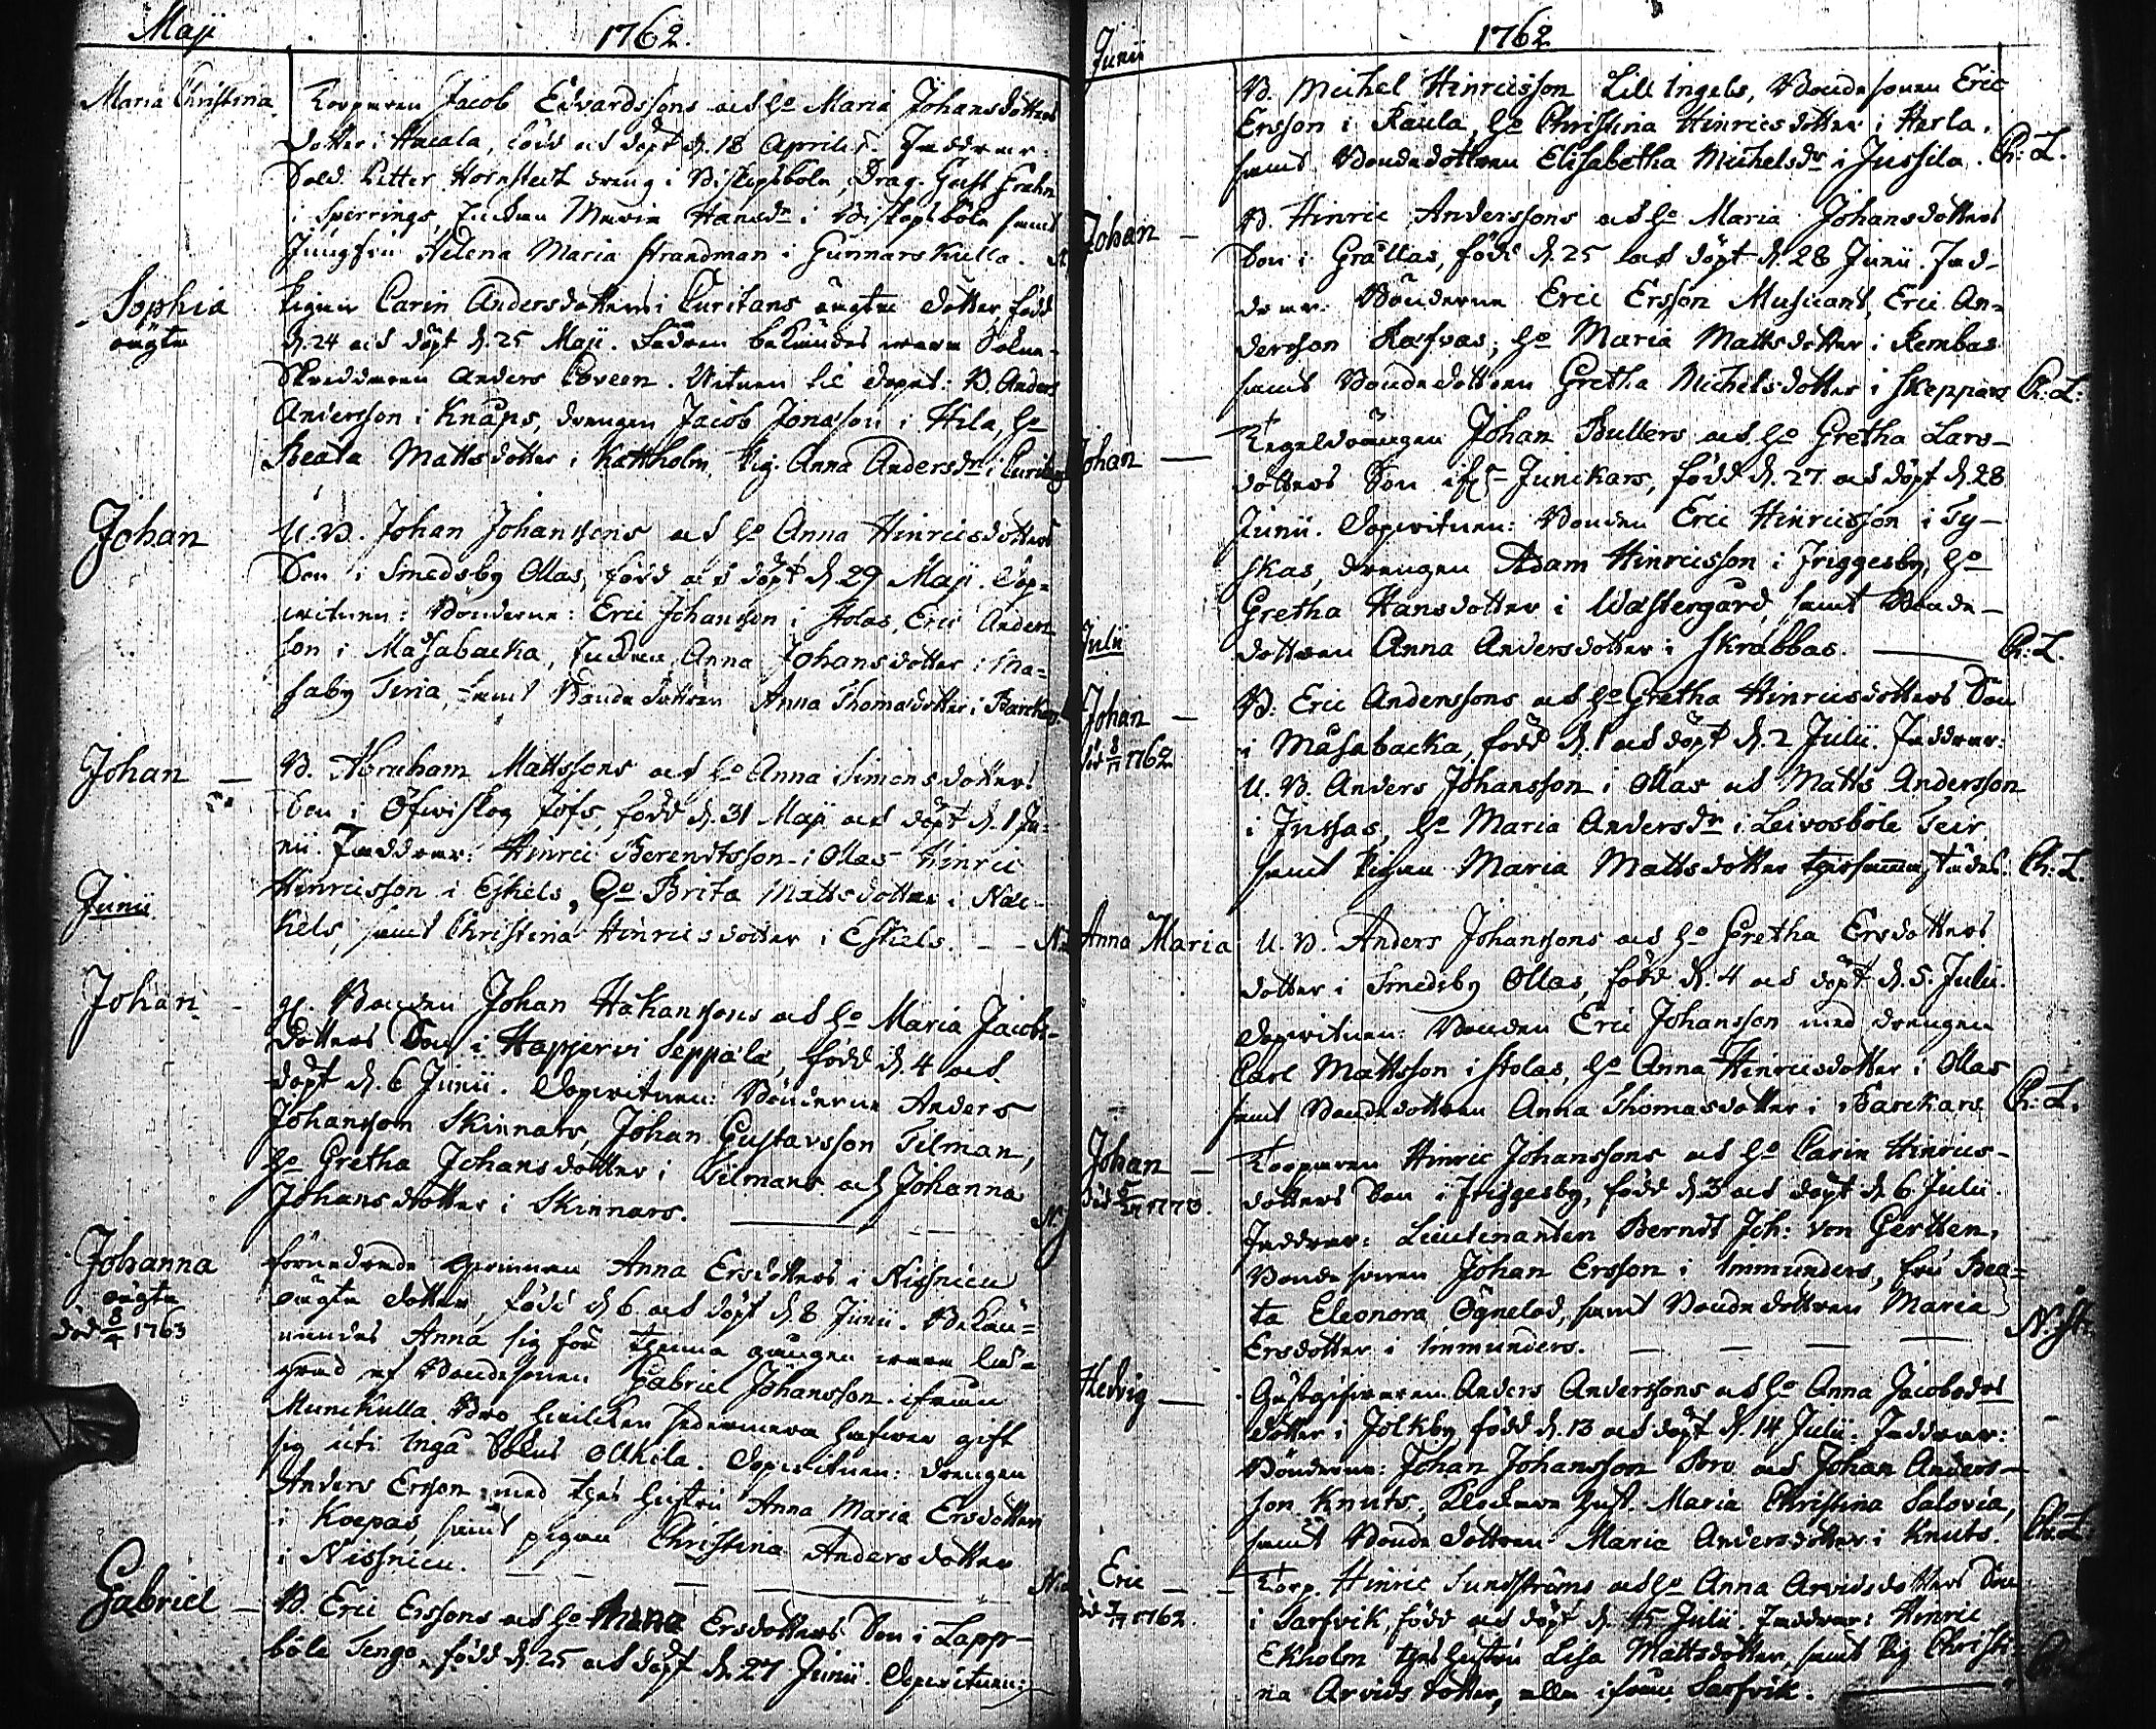 Maji 1762.
Maria Christina Torparen Jacob Edvardssons och Ho Maria Johansdotters
dotter i Hacala, född och döpt d. 18 Aprilis. Faddrar:
Sold. Petter Hornstedt dreng i Biskopsböle, Drag. Gust Grahn
i Sperrings, Enckan Maria Hansdr i Biskopsböle samt
Jungfru Helena Maria Strandman i Gunnarskulla.
Sophia Pigan Carin Andersdotters i Curitans oägta dotter, född
oägta d. 24 och döpt d. 25 Maji. Fadren bekändes wara Sokne-
Skreddaren Anders Loveen. Witnen til dopet: B. Anders
Andersson i Knaps, drengen Jacob Jonasson i Hila, Ho
Beata Mattsdotter i Kattholm, Pig. Anna Andersdr i
Johan U. B. Johan Johanssons och Ho Anna Hinricsdotters
Son i Smedsby Ollas, född och döpt d. 29 Maji. Dop-
witnen: Bönderne: Eric Johansson i Stolas, Eric Anders-
son i Masabacka, Enckan Anna Johansdotter i Ma-
saby Teria, samt Bondedottren Anna Thomasdotter i Barckars
Johan — B. Abraham Mattssons och Ho Anna Simonsdotters
Son i Öfwiskog Tofs, född d. 31 Maji och döpt d. 1 Ju-
nii. Faddrar: Hinric Berendtsson i Ollas Hinric
Junii Hinricsson i Eskels, Ho Brita Mattsdotter i Nac-
kels, samt Christina Hinricsdotter i Eskels. —
Johan Bonden Johan Håkanssons och Ho Maria Jacobs-
dotters Son i Hapjerwi Seppälä, född d. 4 och
döpt d. 6 Junii. Dopwitnen: Bönderne Anders
Johansson Skinnars, Johan Gustavsson Tilman,
Ho Gretha Johansdotter i Tilmans och Johanna
Johansdotter i Skinnars. —
Johanna Anna Ersdotters i Nissnicu
oägta oägta dotter, född d. 6 och döpt d. 8 Junii. Bekän-
död 8/4 1763 nandes Anna sig för thenna gången wara
af Bondesonen Gabriel Johansson ifrån
Munckulla Bro, hwilcken sedermera hafwer gift
sig uti Ingå Sokn Ollkila. Dopwitnen: drengen
Anders Ersson med thes hustru Anna Maria Ersdotter
i Koepas, samt pigan Christina Andersdotter
i Nissnicu. —
Gabriel — B. Eric Erssons och Ho Maria Ersdotters Son i Lapp-
böle Tengo, född d. 25 och döpt d. 27 Junii. Dopwitnen:
Junii 1762
B. Michel Hinricsson Lill Ingels, Bondesonen Eric
Ersson i Kaula, Ho Christina Hinricsdotter i Herla,
samt Bondedottren Elisabetha Michelsdr i Jussila. Ch: L.
Johan — B. Hinric Anderssons och Ho Maria Johansdotters
Son i Grållas, född d. 25 och döpt d. 28 Junii. Fad-
drar: Bönderne Eric Ersson Musicant, Eric An-
dersson Rafvas, Ho Maria Mattsdotter i Rembas
samt Bondedottren Gretha Michelsdotter i Skeppars Ch: L:
Johan — Tegeldrängen Johan Bullers och Ho Gretha Lars-
dotters Son Junckars, född d. 27 och döpt d. 28
Junii. Dopwitnen: Bonden Eric Hinricsson i Ty-
skas, drengen Adam Hinricsson i Friggesby, Ho
Gretha Hansdotter i Wästergård, samt Bonde-
Julii dottren Anna Andersdotter i Skräbbas. — Ch: L.
Johan — B: Eric Anderssons och Ho Gretha Hinricsdotters Son
död 8/11 1762 i Måsabacka, född d. 1 och döpt d. 2 Julii. Faddrar:
U. B. Anders Johansson i Ollas och Matts Andersson
i Jussas, Ho Maria Andersdr i Leivosböle Teir,
samt Pigan Maria Mattsdotter thersammastädes. Ch: L.
Anna Maria U. B. Anders Johanssons och Ho Gretha Ersdotters
dotter i Smedsby Ollas, född d. 4 och döpt d. 5. Julii.
Dopwitnen: Bonden Eric Johansson med drengen
Carl Mattsson i Stolas, Ho Anna Hinricsdotter i Ollas
samt Bondedottren Anna Thomasdotter i Barckars Ch: L.
Johan — Torparen Hinric Johanssons och Ho Carin Hinrics-
död 1773. dotters Son i Friggesby, född d. 3 och döpt d. 6 Julii.
Faddrar: Lieutenanten Berndt Joh: von Gertten,
Bondesonen Johan Ersson i Immunders, fru Bea-
ta Eleonora Ögnelod, samt Bondedottren Maria
Ersdotter i Immunders. — — — — N. St.
Hedvig — Gästgifwaren Anders Anderssons och Ho Anna Jacobsdrs
dotter i Jolkby, född d. 13 och döpt d. 14 Julii: Faddrar:
Bönderne: Johan Johansson Bro och Johan Anders-
son Knuts, Klockare hust. Maria Christina Salovia,
samt Bondedottren Maria Andersdotter i Knuts. Ch: L:
Eric — Torp. Hinric Sundströms och Ho Anna Arvidsdotters Son
död 1762. i Sarfvik, född och döpt d. 15 Julii. Faddrar: Hinric
Ekholm thes hustru Lisa Mattsdotter, samt Pig Christi-
na Arvidsdotter, alla ifrån Sarfvik. —